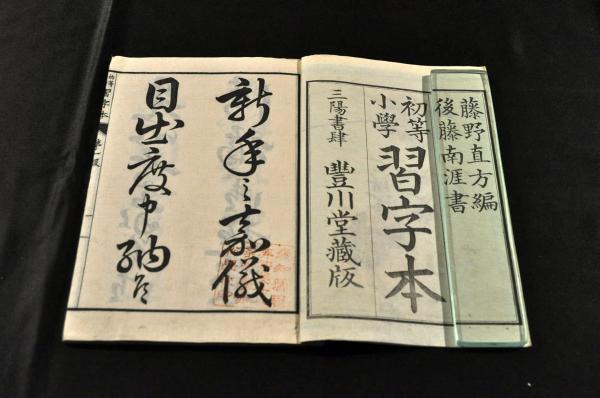 藤野直方編
後藤南涯書
初等
小學
習字本
三陽書肆
豐川堂藏版
新年之嘉儀
目出度申納候